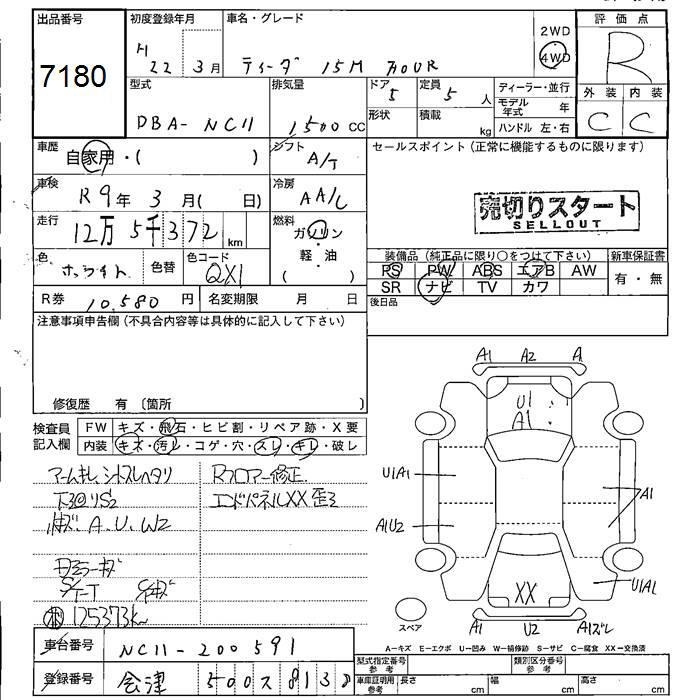 出品番号
7180
初度登録年月
H 22年 3月
車名・グレード
ティーダ 15M AOUR
2WD
4WD
評価点
R
外装 内装
C C
型式
DBA- NC11
排気量
1,500 CC
ドア 5
形状
定員 5 人
積載 kg
ディーラー・並行
モデル年式 年
ハンドル 左・右
車歴
自家用・( )
シフト
A/T
セールスポイント(正常に機能するものに限ります)
車検
R9年 3月( 日)
冷房
AA/C
売切りスタート
SELLOUT
走行
12万5千372 km
燃料
ガソリン
軽・油
( )
色
ホワイト
色替
色コード
QX1
装備品(純正品に限り○をつけて下さい)
新車保証書
PS PW ABS エアB AW
有・無
SR ナビ TV カワ
R券 10,580 円
名変期限 月 日
後日品
注意事項申告欄(不具合内容等は具体的に記入して下さい)
修復歴 有〔箇所 〕
検査員記入欄
FW キズ・飛石・ヒビ割・リペア跡・X要
内装 キズ・汚レ・コゲ・穴・スレ・キレ・破レ
Rフロアー修正
エンドパネルXX歪ミ
A.U.W2
125373k
A1 A2 A
U1
A1
U1A1
A1
A1U2
XX
U1A1
スペア
A1 U2 A1ズレ
A-キズ E-エクボ U-凹み W-補修跡 S-サビ C-腐食 XX-交換済
車台番号
NC11-200591
登録番号
会津 500ス 813
型式指定番号 参考
類別区分番号 参考
車庫証明用参考 長さ cm 幅 cm 高さ cm